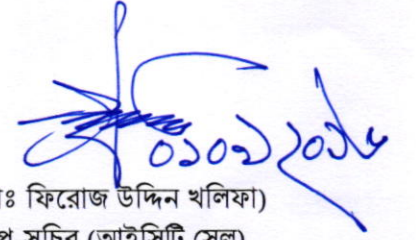 ০১০৯২০১৮
ঃ ফিরোজ উদ্দিন খলিফা)
প সচিব (আইসিটি সেল)